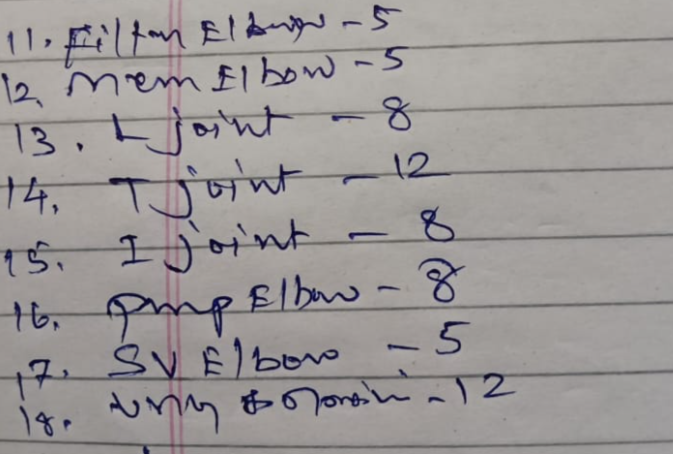 11. Filter Elbow - 5
12. Mem Elbow - 5
13. L joint - 8
14. T joint - 12
15. I joint - 8
16. Pmp Elbow - 8
17. SV Elbow - 5
18. - 12